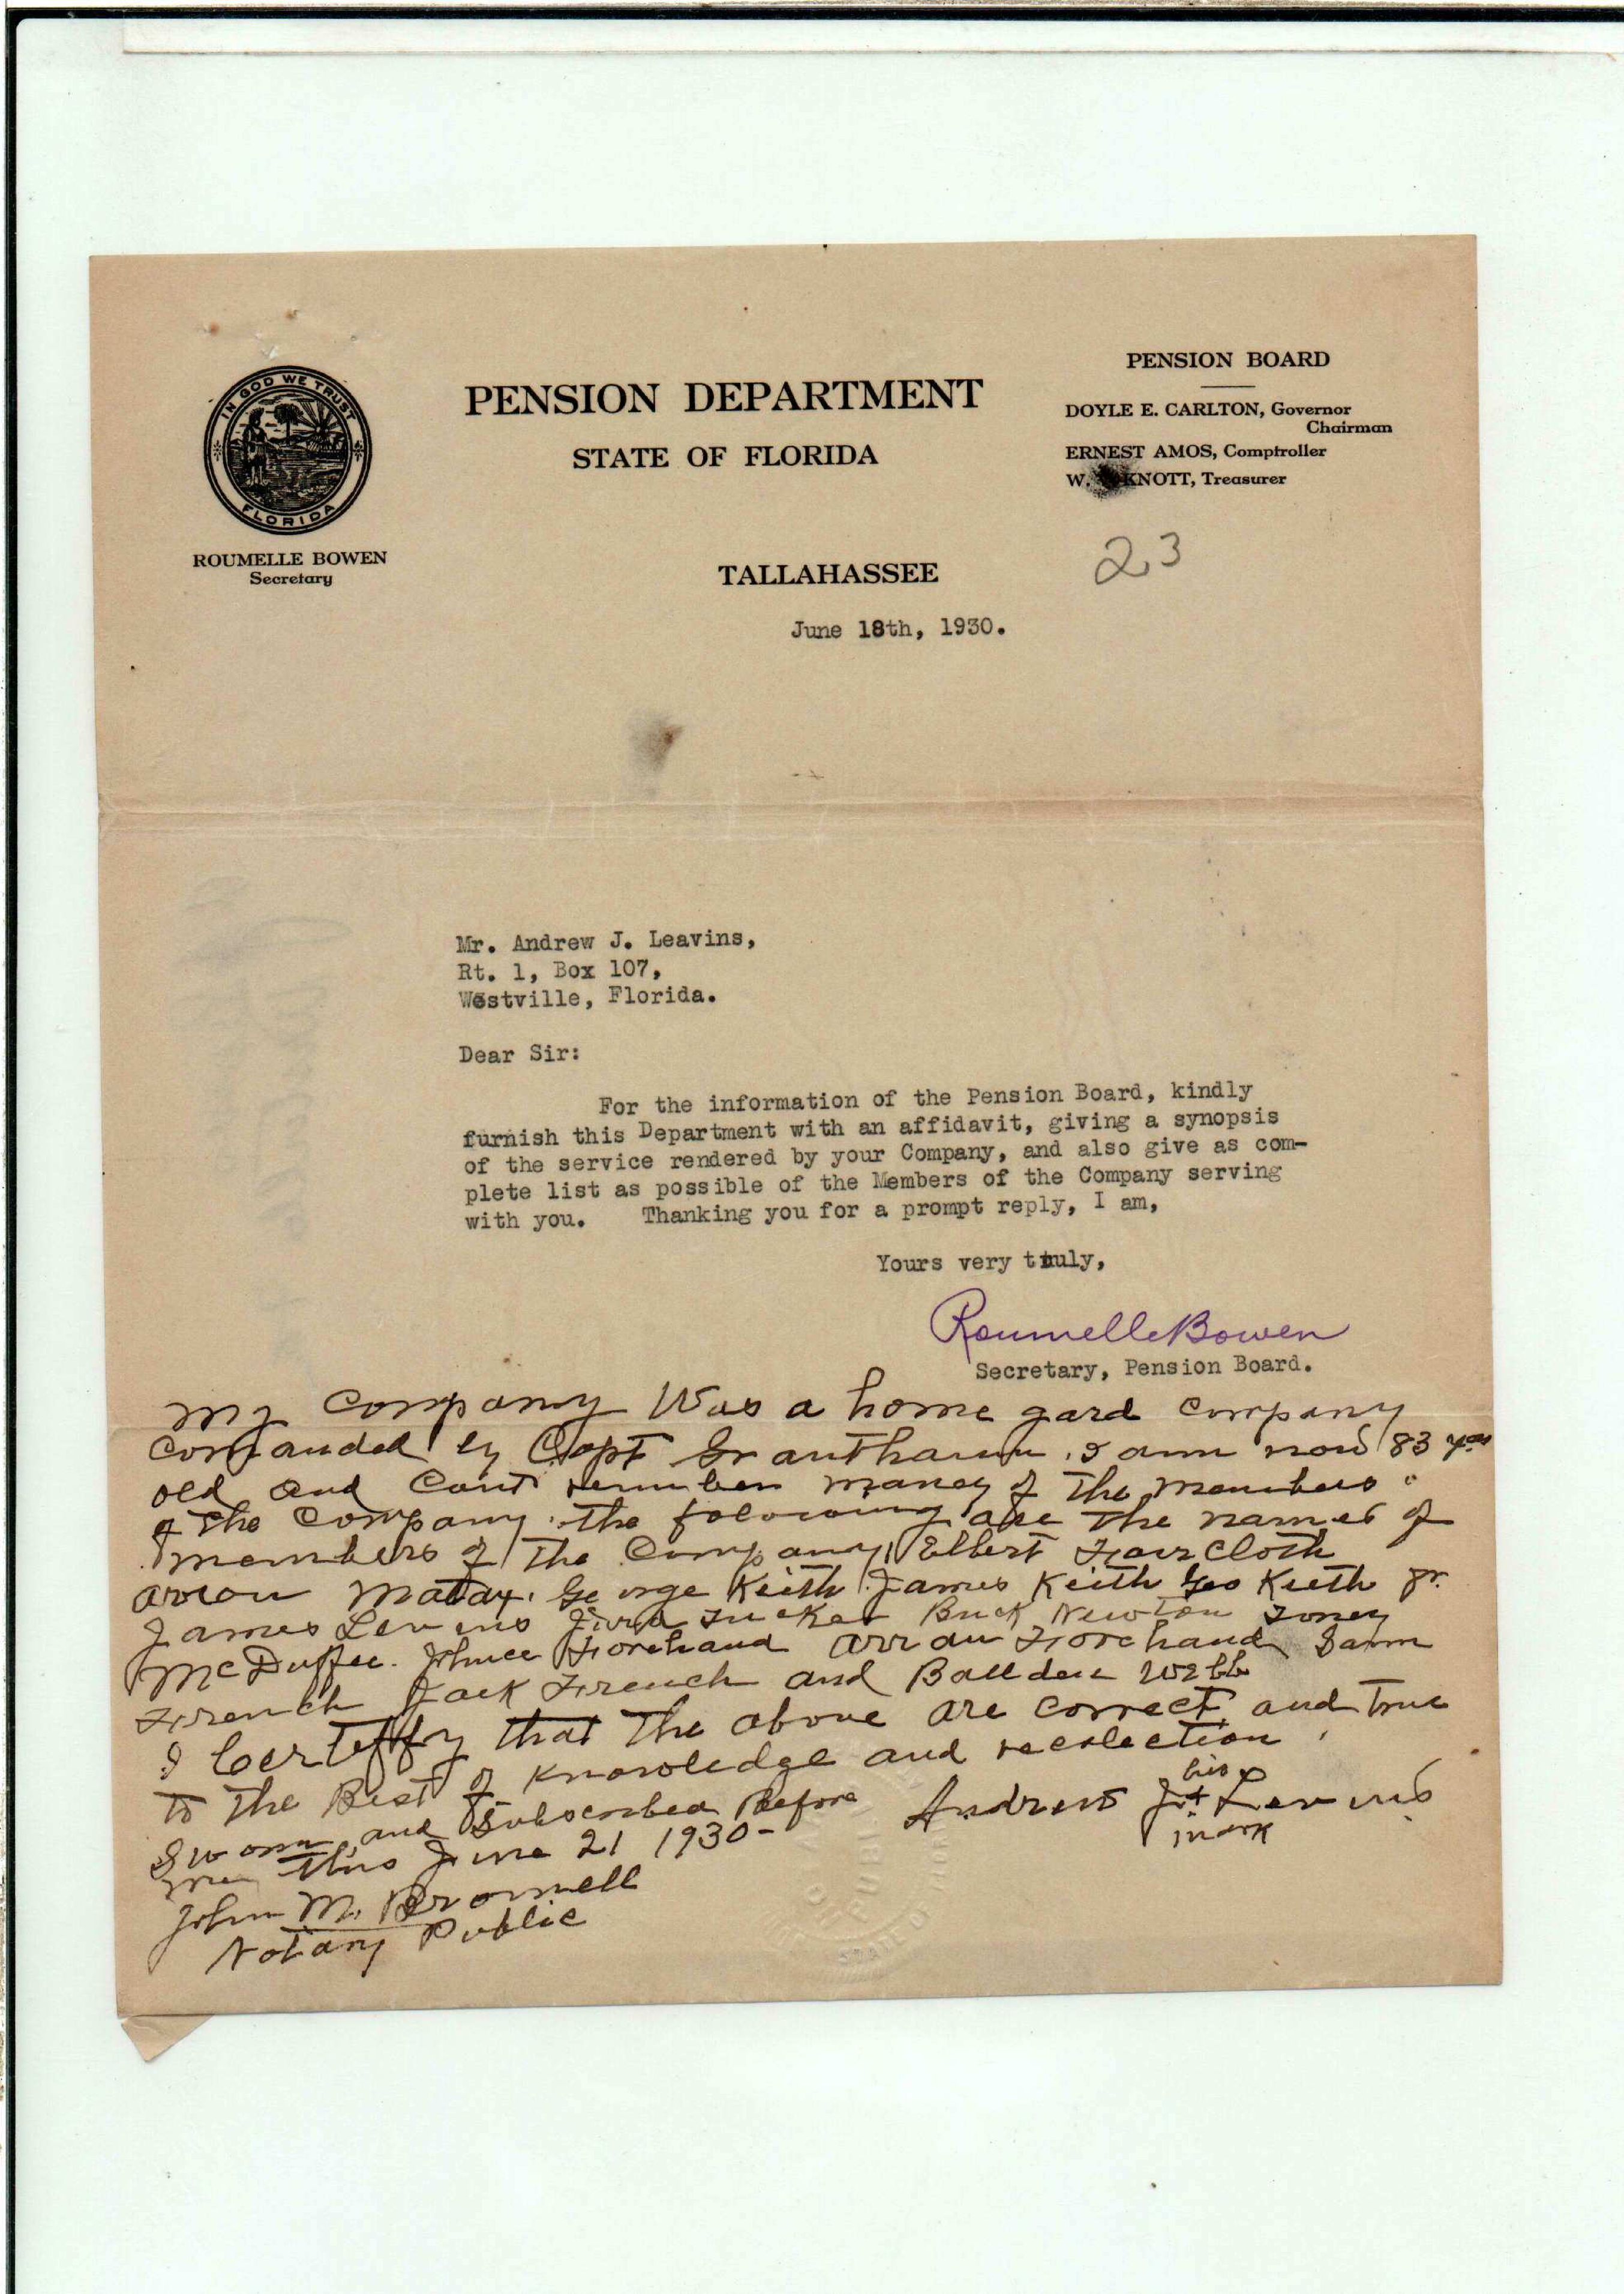 IN GOD WE TRUST
FLORIDA
ROUMELLE BOWEN
Secretary
PENSION DEPARTMENT
STATE OF FLORIDA
TALLAHASSEE
PENSION BOARD
DOYLE E. CARLTON, Governor
Chairman
ERNEST AMOS, Comptroller
W. KNOTT, Treasurer
23
June 18th, 1930.
Mr. Andrew J. Leavins,
Rt. 1, Box 107,
Westville, Florida.
Dear Sir:
For the information of the Pension Board, kindly
furnish this Department with an affidavit, giving a synopsis
of the service rendered by your Company, and also give as com-
plete list as possible of the Members of the Company serving
with you. Thanking you for a prompt reply, I am,
Yours very truly,
Roumelle Bowen
Secretary, Pension Board.
my company Was a home gard company
comanded by Capt Granthamm. I amm now 83 yrs
old and Cant remember maney of the members
of the Company. the folowing are the names of
members of the Company Elbert Faircloth
George Keith James Keith Geo Keith jr.
James Levins Tucker Buck Newton Toney
McDuffee. Forehand Forehand Samm
French Jack French and Webb
I Certeffy that the above are correct and true
to the Best of knowledge and recolection.
Sworn and Subscribed Before
me this June 21 1930-
Andrew J + Levins
his
mark
John M. Brownell
Notary Public